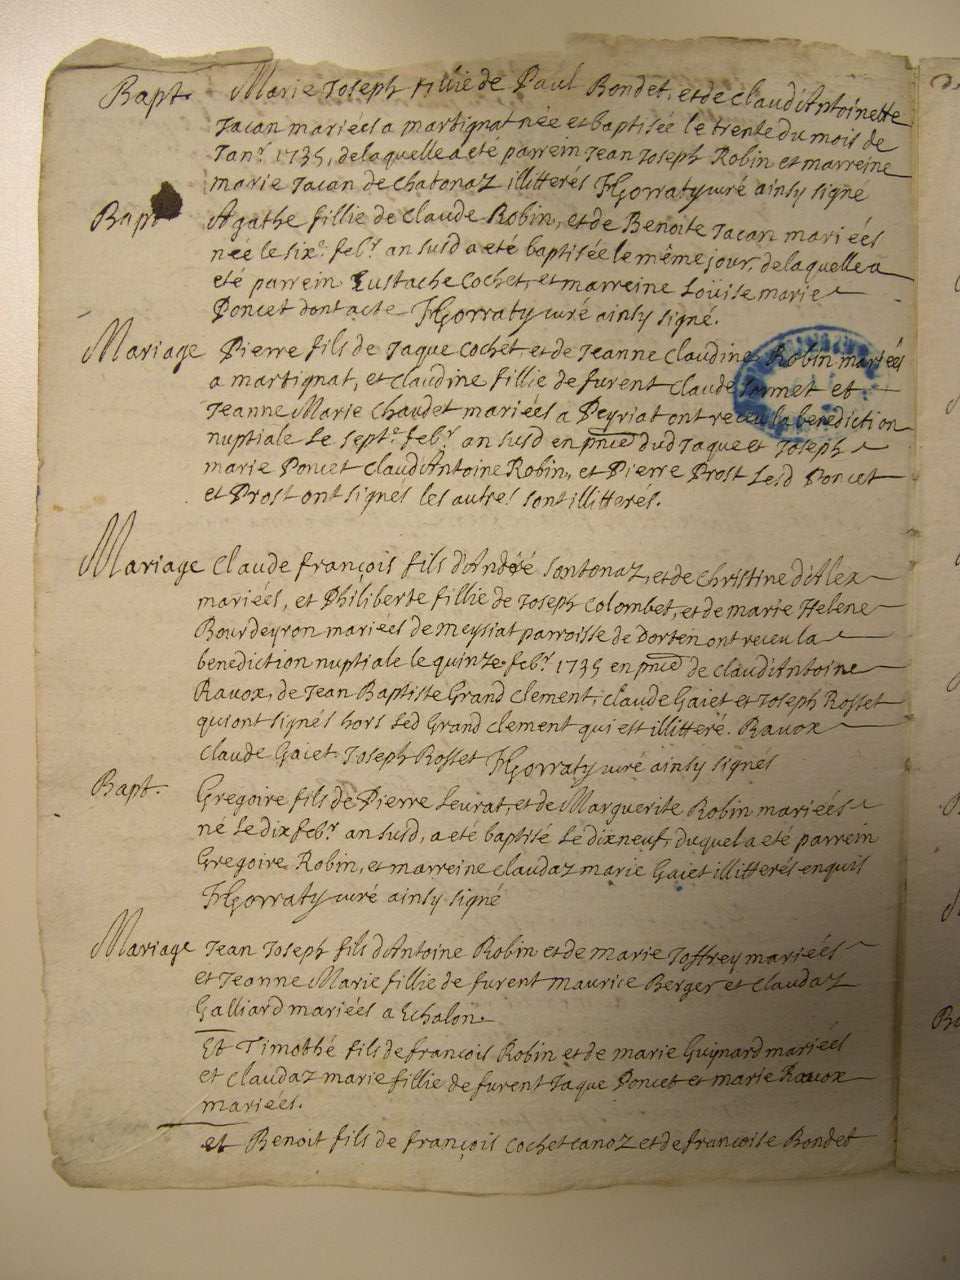 Bapt. Marie Joseph fillie de Paul Bondet, et de Claud'Antoinette
Jacan mariées a martignat née et baptisée le trente du mois de
Janr. 1735, de laquelle a eté parrein Jean Joseph Robin et marreine
marie Jacan de Chatonaz illitterés JHGorraty curé ainsy signé
Bapt Agathe fillie de Claude Robin, et de Benoite Jacan mariéés
née le sixe. febr. an susd a eté baptisée le même jour, de laquelle a
eté parrein Eustache Cochet, et marreine Loüise marie
Poncet dont acte JHGorraty curé ainsy signé.
Mariage Pierre fils de Jaque Cochet, et de Jeanne Claudine Robin mariéés
a martignat, et Claudine fillie de furent Claude et
Jeanne Marie Chaudet mariées a Peyriat ont receu la benediction
nuptiale le septe. febr. an susd en pnce dud Jaque et Joseph
marie Poncet Claud'Antoine Robin, et Pierre Prost Lesd Poncet
et Prost ont signés les autres sont illitterés.
Mariage Claude françois fils d'André Sontonaz, et de Christine d'Alex
mariéés, et Philiberte fillie de Joseph Colombet, et de marie Helene
Bourdeyron mariéés de meysiat parroisse de Dorten ont receu la
benediction nuptiale le quinze febr. 1735 en pnce de Claud'Antoine
Ravox, de Jean Baptiste Grand Clement, Claude Gaiet et Joseph Rosset
qui ont signés hors led Grand Clement qui est illitteré. Ravox
Claude Gaiet Joseph Rosset JHGorraty curé ainsy signés
Bapt. Gregoire fils de Pierre Levrat, et de Marguerite Robin mariéés
né le dix febr. an susd, a eté baptisé le dixneuf, duquel a eté parrein
Gregoire Robin, et marreine Claudaz marie Gaiet illitterés enquis
JHGorraty curé ainsy signé
Mariage Jean Joseph fils d'Antoine Robin et de marie Joffrey mariéés
et Jeanne Marie fillie de furent maurice Berger et Claudaz
Galliard mariéés a Echalon.
Et Timothé fils de françois Robin et de marie Guynard mariéés
et Claudaz marie fillie de furent Jaque Poncet et marie Ravox
mariéés.
et Benoit fils de françois Cochet canoz et de francoise Bondet